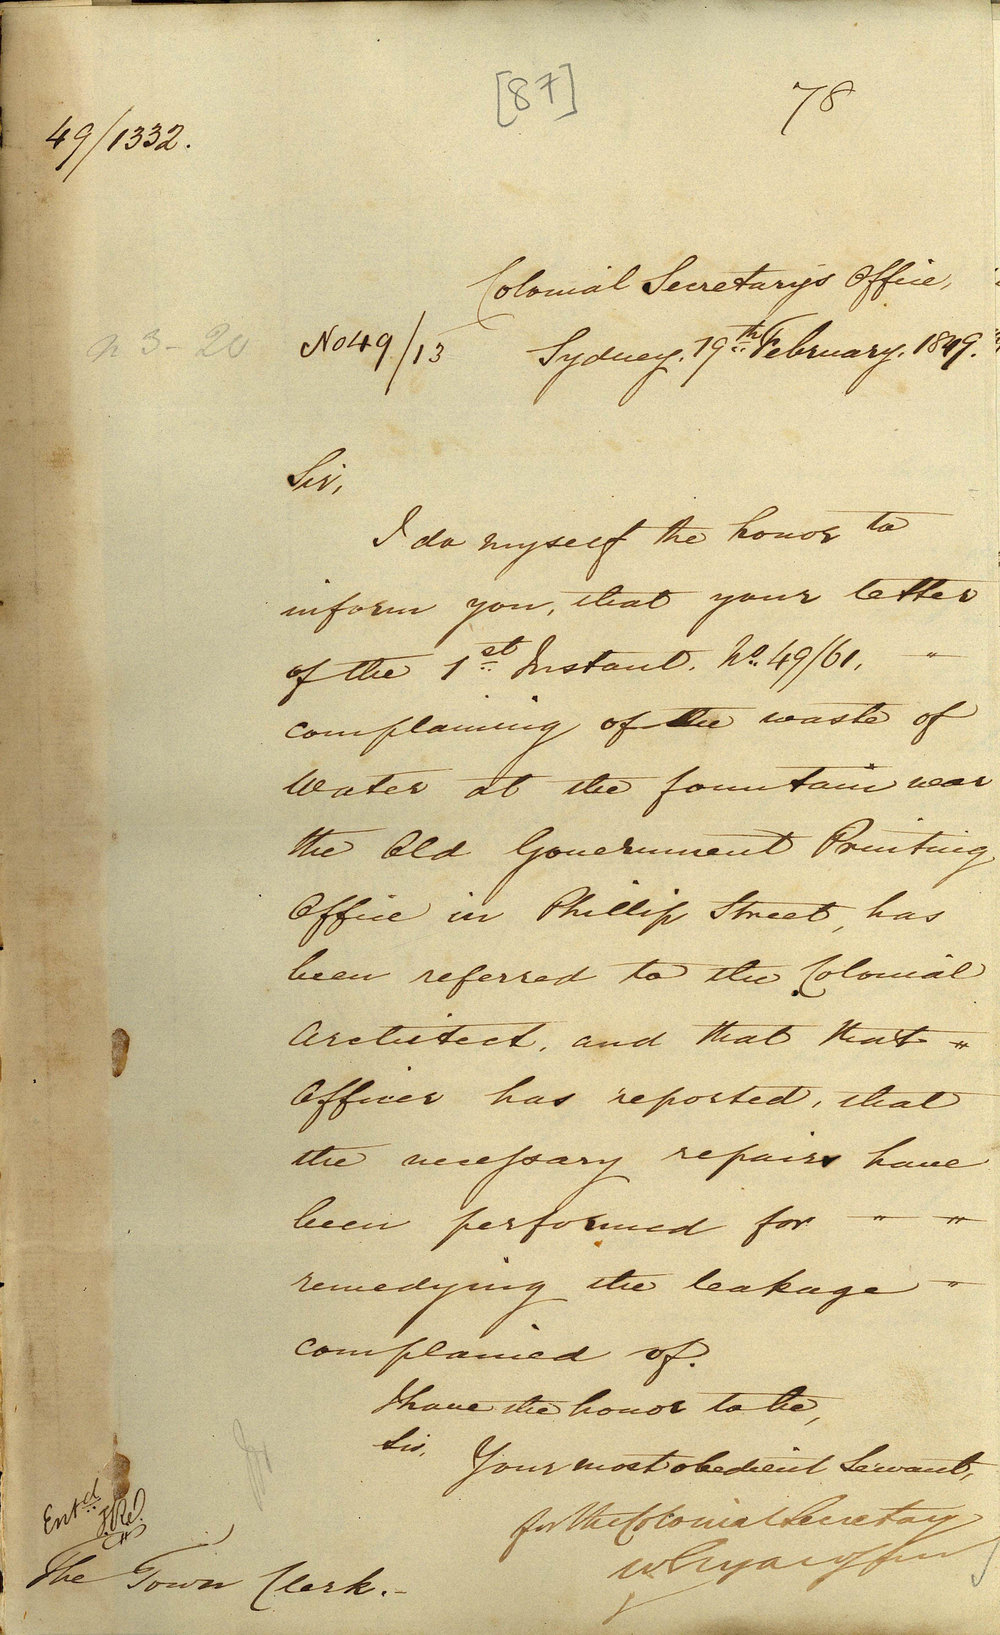 [87]
78
49/1332.
Colonial Secretary's Office,
No 49/13
Sydney. 19th February. 1849.
Sir,
I do myself the honor to
inform you, that your letter
of the 1st Instant. No. 49/61, "
complaining of the waste of
Water at the fountain near
the Old Government Printing
Office in Phillip Street, has
been referred to the Colonial
Architect, and that that "
Officer has reported, that
the necessary repairs have
been performed for " "
remedying the leakage "
complained of.
I have the honor to be,
Sir,
Your most obedient Servant,
for the Colonial Secretary
W
Entd
The Town Clerk.-